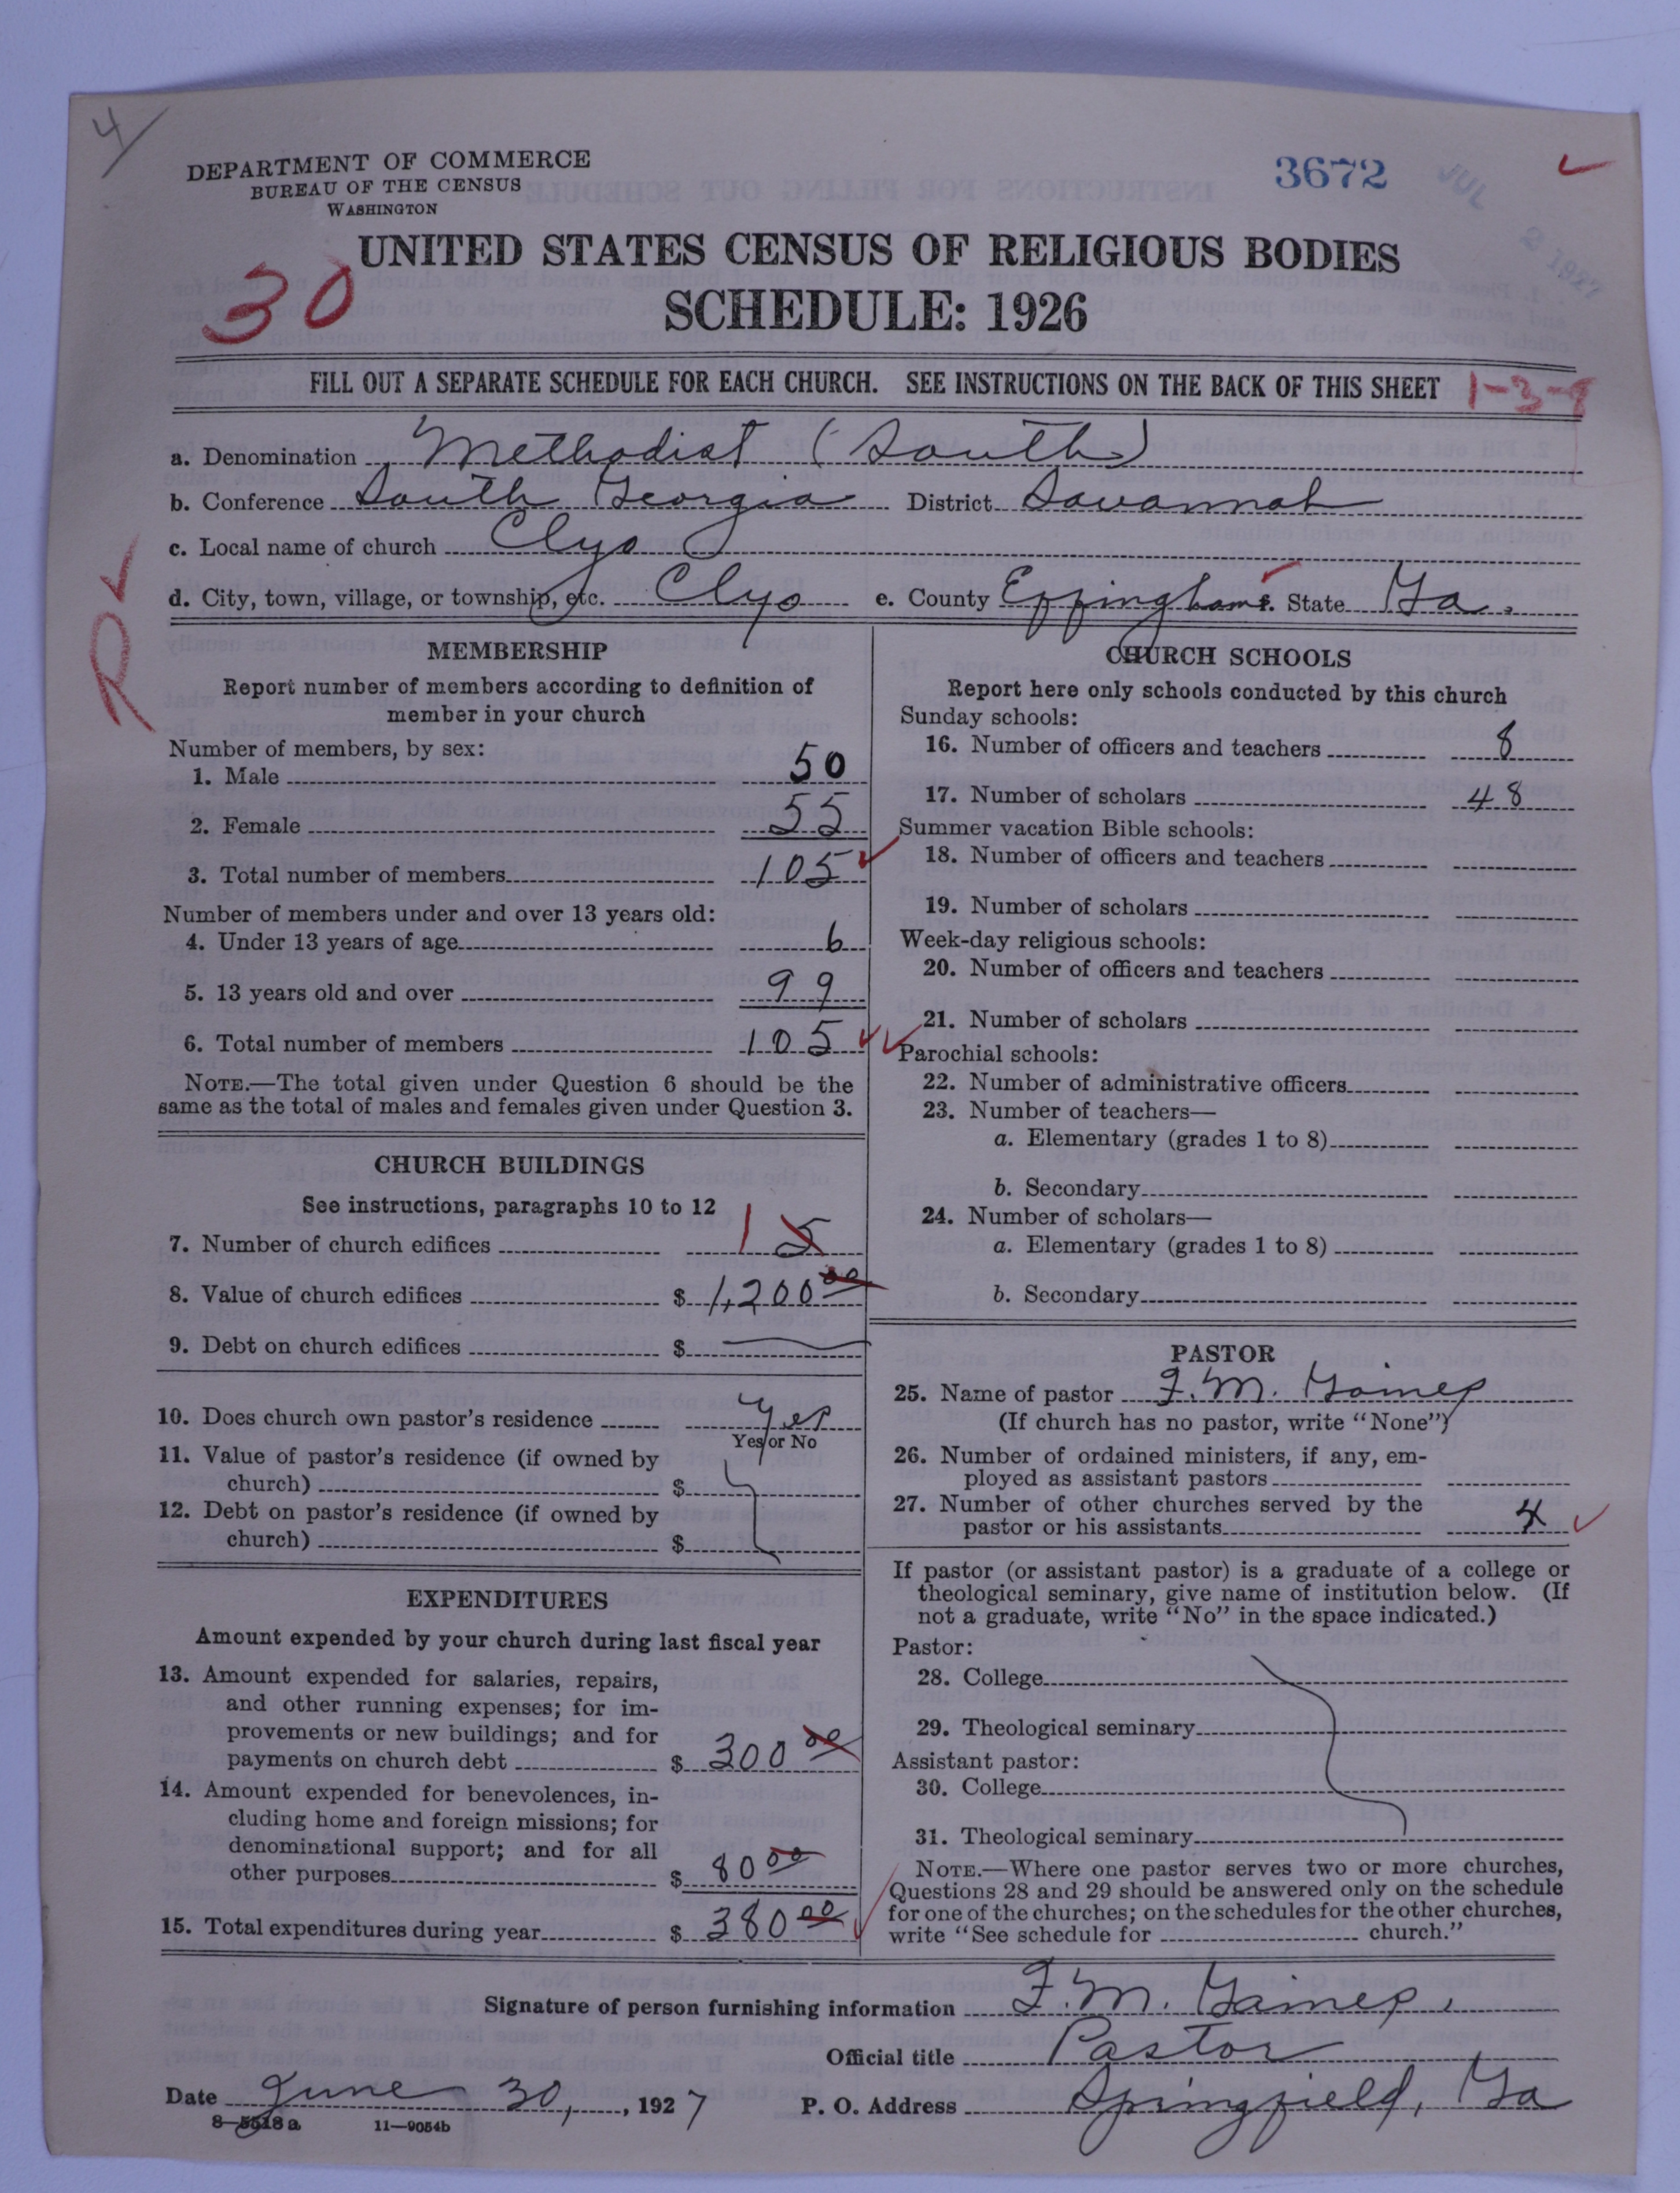 4
DEPARTMENT OF COMMERCE
BUREAU OF THE CENSUS
WASHINGTON
3672
JUL 2 1927
UNITED STATES CENSUS OF RELIGIOUS BODIES
30
SCHEDULE: 1926
FILL OUT A SEPARATE SCHEDULE FOR EACH CHURCH. SEE INSTRUCTIONS ON THE BACK OF THIS SHEET
1-3-9
a. Denomination Methodist (South)
b. Conference South Georgia District Savannah
c. Local name of church Clyo
d. City, town, village, or township, etc. Clyo e. County Effingham f. State Ga.
MEMBERSHIP
Report number of members according to definition of
member in your church
Number of members, by sex:
1. Male 50
2. Female 55
3. Total number of members 105
Number of members under and over 13 years old:
4. Under 13 years of age 6
5. 13 years old and over 99
6. Total number of members 105
NOTE.—The total given under Question 6 should be the
same as the total of males and females given under Question 3.
CHURCH BUILDINGS
See instructions, paragraphs 10 to 12
7. Number of church edifices 1 5
8. Value of church edifices $ 1,200 00
9. Debt on church edifices $
10. Does church own pastor's residence Yes
Yes or No
11. Value of pastor's residence (if owned by
church) $
12. Debt on pastor's residence (if owned by
church) $
EXPENDITURES
Amount expended by your church during last fiscal year
13. Amount expended for salaries, repairs,
and other running expenses; for im-
provements or new buildings; and for
payments on church debt $ 300 00
14. Amount expended for benevolences, in-
cluding home and foreign missions; for
denominational support; and for all
other purposes $ 80 00
15. Total expenditures during year $ 380 00
CHURCH SCHOOLS
Report here only schools conducted by this church
Sunday schools:
16. Number of officers and teachers 8
17. Number of scholars 48
Summer vacation Bible schools:
18. Number of officers and teachers
19. Number of scholars
Week-day religious schools:
20. Number of officers and teachers
21. Number of scholars
Parochial schools:
22. Number of administrative officers
23. Number of teachers—
a. Elementary (grades 1 to 8)
b. Secondary
24. Number of scholars—
a. Elementary (grades 1 to 8)
b. Secondary
PASTOR
25. Name of pastor F. M. Gaines
(If church has no pastor, write "None")
26. Number of ordained ministers, if any, em-
ployed as assistant pastors
27. Number of other churches served by the
pastor or his assistants 4
If pastor (or assistant pastor) is a graduate of a college or
theological seminary, give name of institution below. (If
not a graduate, write "No" in the space indicated.)
Pastor:
28. College
29. Theological seminary
Assistant pastor:
30. College
31. Theological seminary
NOTE.—Where one pastor serves two or more churches,
Questions 28 and 29 should be answered only on the schedule
for one of the churches; on the schedules for the other churches,
write "See schedule for church."
Signature of person furnishing information F. M. Gaines,
Official title Pastor
Date June 30, 1927 P. O. Address Springfield, Ga
8—5518 a 11—9054b